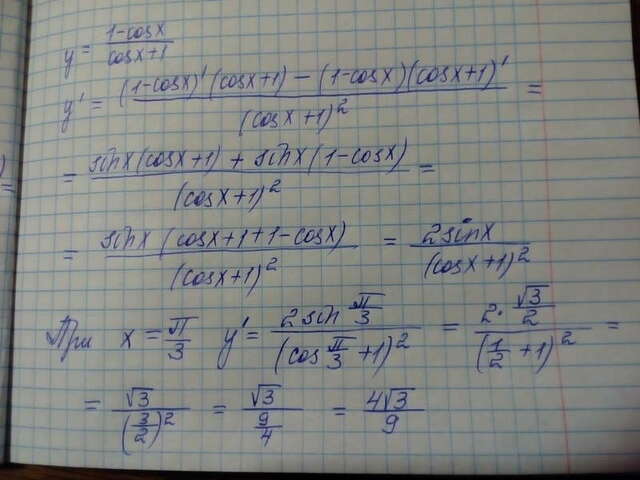 y = (1-cosx)/(cosx+1)
y' = ((1-cosx)'(cosx+1) - (1-cosx)(cosx+1)')/(cosx+1)² =
= (sinx(cosx+1) + sinx(1-cosx))/(cosx+1)² =
= (sinx(cosx+1+1-cosx))/(cosx+1)² = (2sinx)/(cosx+1)²
При x = π/3 y' = (2sin π/3)/(cos π/3 +1)² = (2·√3/2)/(1/2+1)² =
= √3/(3/2)² = √3/(9/4) = 4√3/9